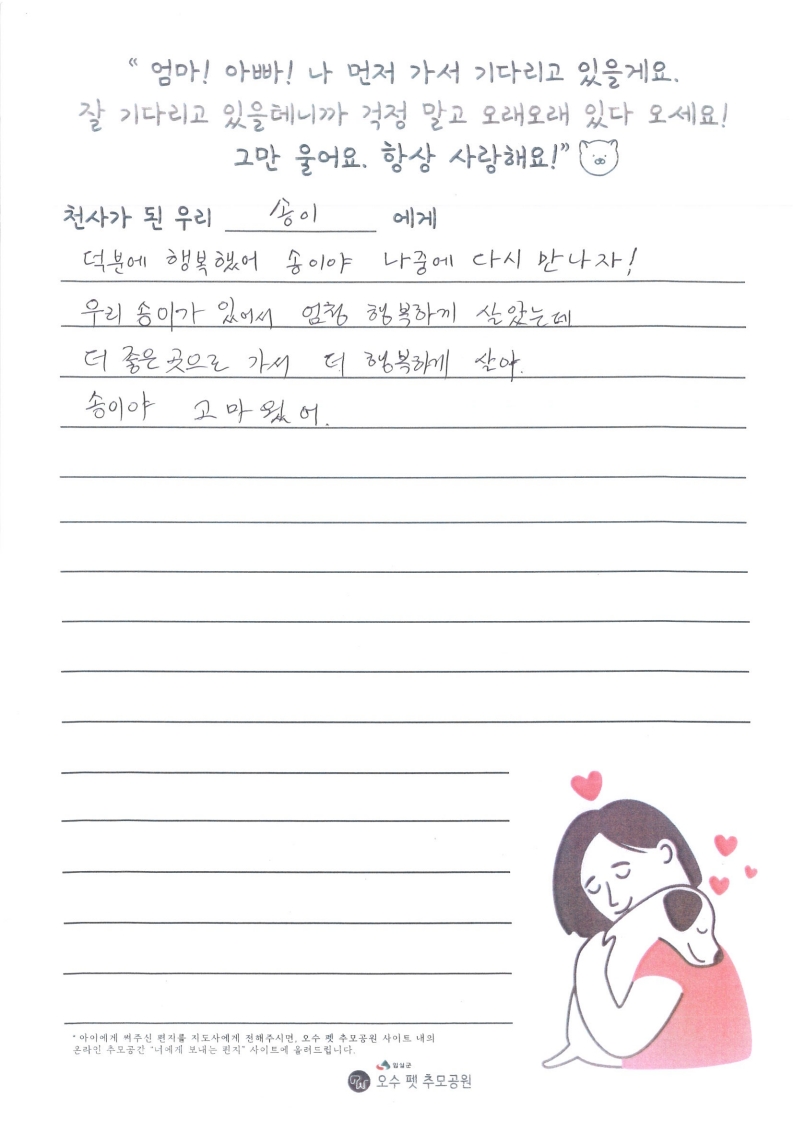 “ 엄마! 아빠! 나 먼저 가서 기다리고 있을게요.
잘 기다리고 있을테니까 걱정 말고 오래오래 있다 오세요!
그만 울어요. 항상 사랑해요!”
천사가 된 우리 송이 에게
덕분에 행복했어 송이야 나중에 다시 만나자!
우리 송이가 있어서 엄청 행복하게 살았는데
더 좋은 곳으로 가서 더 행복하게 살아.
송이야 고마웠어.
* 아이에게 써주신 편지를 지도사에게 전해주시면, 오수 펫 추모공원 사이트 내의
온라인 추모공간 “너에게 보내는 편지” 사이트에 올려드립니다.
임실군
오수 펫 추모공원